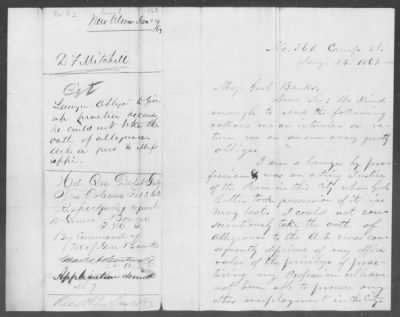 New Orleans Jan
D. F. Mitchell
Lawyer Obliged to Give
up practice because
he could not take the
oath of allegiance.
Asks a pass to Miss
issippi.
Hd Qrs Dept Gulf
New Orleans Feb 3d 63
Respectfully referred
to James Bowen
P. M. G.
By Command of
Maj Genl Banks
Application denied
No. 260. Camp St.
Jany. 24. 1863
Maj. Genl. Banks,
Dear Sir: Be kind
enough to read the following
& allow me an interview or re-
turn me an answer & very greatly
oblige.
I am a lawyer by pro-
fession & was an acting Justice
of the Peace in this City when Genl
Butler took possession of it in
May last. I could not con-
scientiously take the oath of
Allegiance to the U.S. & was con-
sequently deprived of my office
& also of the privilege of prac-
ticing my Profession & have
not been able to procure any
other employment in the City